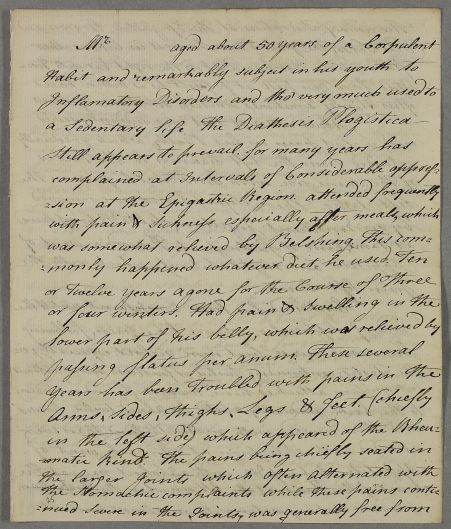 Mr. aged about 50 years. of a Corpulent
Habit and remarkably subject in his youth to
Inflamatory Disorders and tho' very much used to
a Sedentary life the Diathesis Phlogistica
Still appears to prevail. for many years has
complained at Intervals of Considerable oppres-
-sion at the Epigastric Region attended frequently
with pain & Sickness especially after meals, which
was somewhat relieved by Belching. This com-
-monly happened whatever diet he used. Ten
or Twelve years agone for the Course of Three
or four winters. Had pain & Swelling in the
lower part of his belly, which was relieved by
passing flatus per anum. These several
Years has been Troubled with pains in the
Arms, Sides, Thighs, Legs & feet (chiefly
in the left side) which appeared of the Rheu-
-matic kind. The pains being chiefly seated in
the larger Joints which often alternated with
the Stomachic complaints while these pains conti-
-nued Severe in the Joints, was generally free from